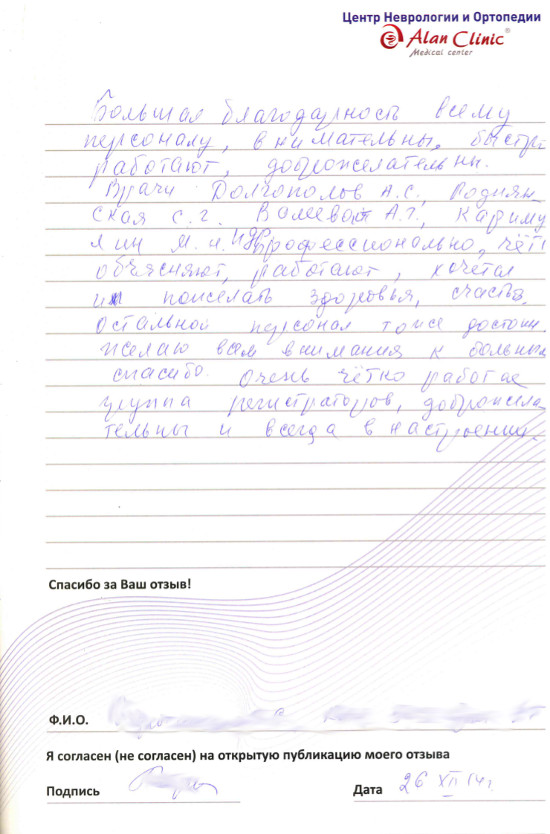 Центр Неврологии и Ортопедии
Alan Clinic®
Medical center
Большая благодарность всему
персоналу, внимательны, быстро
работают, доброжелательны.
Врачи Долгополов А.С., Роднян-
ская С.Г. Валеева А.Г., Кариму
лин М.Н. профессионально, чётк
объясняют, работают, хочется
им пожелать здоровья, счастья,
остальной персонал тоже достоин.
желаю всем внимания к больным
спасибо. Очень чётко работае
группа регистраторов, доброжела
тельны и всегда в настроении.
Спасибо за Ваш отзыв!
Ф.И.О.
Я согласен (не согласен) на открытую публикацию моего отзыва
Подпись Дата 26 XII 14г.